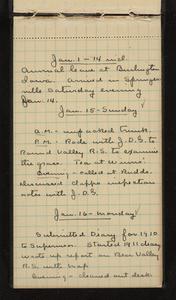 Jan. 1 - 14 incl.
Annual leave at Burlington
Iowa. arrived in Springer-
ville Saturday evening
Jan. 14.
Jan. 15 - Sunday
A.M. - unpacked trunk.
P.M. - Rode with J.D.G. to
Round Valley R.S. to examine
the grass. Tea at
Evening - called at Rudds.
Discussed Clapps inspection
notes with J.D.G.
Jan. 16 - Monday
Submitted Diary for 1910
to Supervisor. Started 1911 diary
wrote up report on Bear Valley
R.S. with map.
Evening - cleaned out desk.